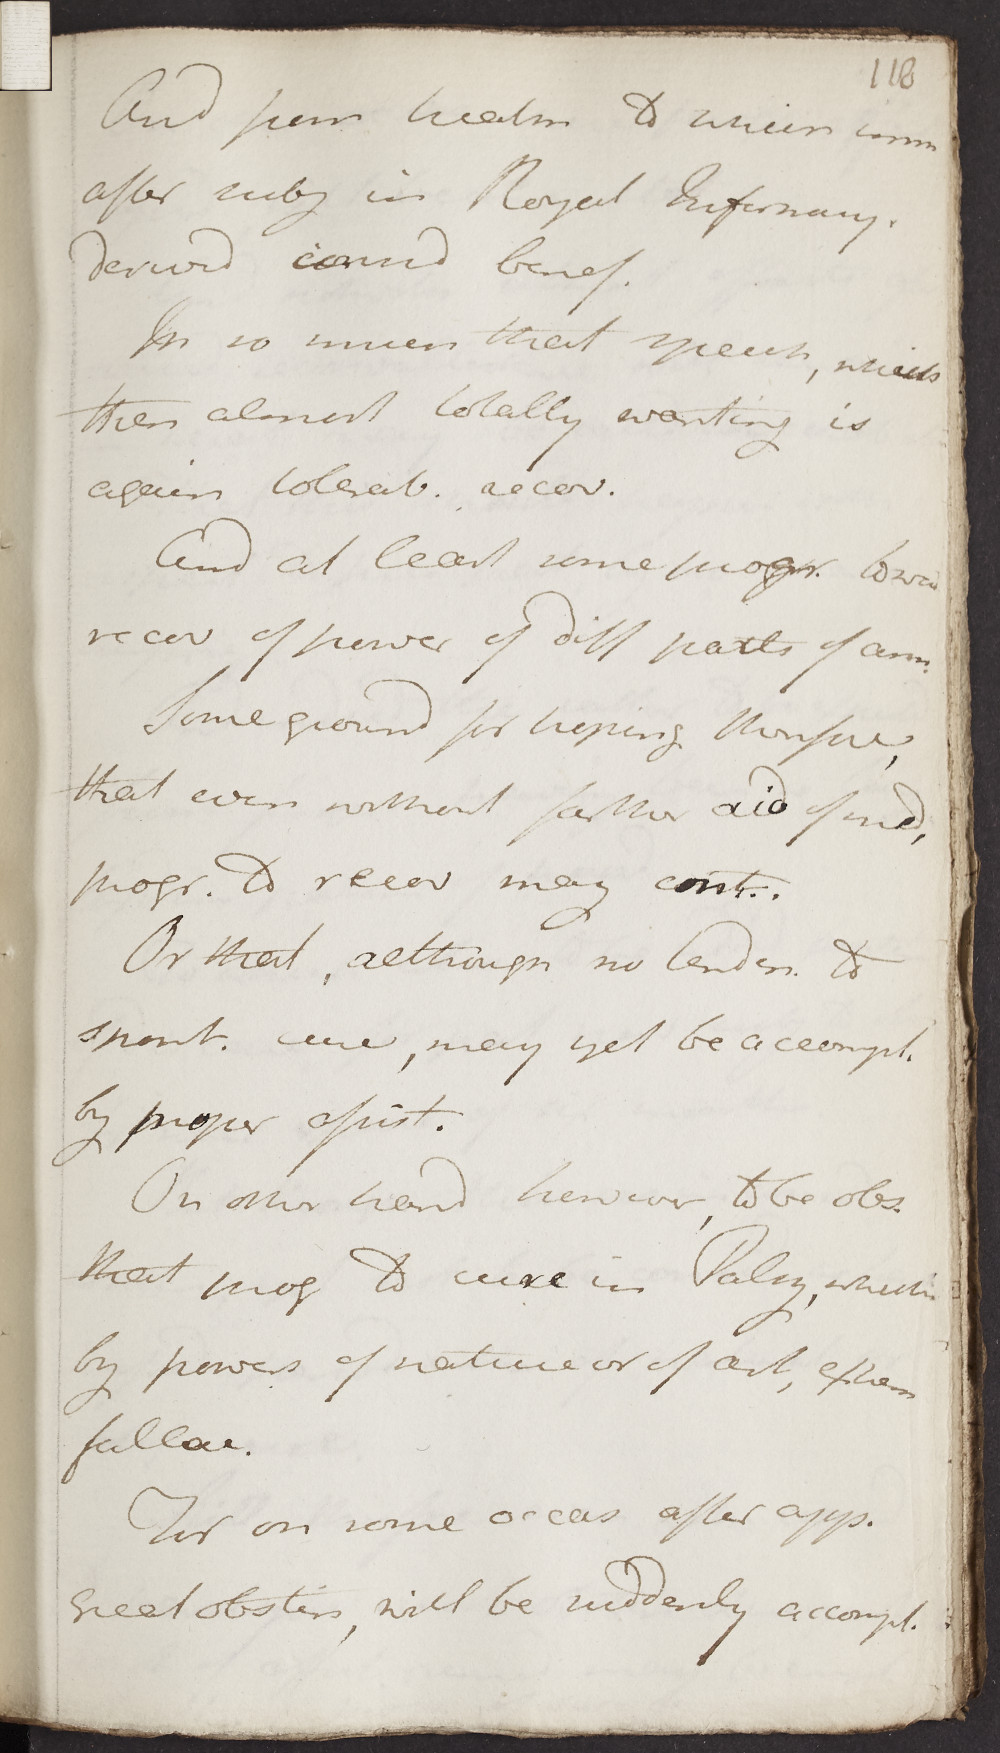 118
And from healm to which imm
after subj in Royal Infirmary.
derived consid benef.
In so much that speech, which
then almost totally wanting is
again tolerab. recov.
And at least some progr. towa
recov of power of diff parts of arm.
Some ground for hoping therefore,
that even without farther aid of med,
progr. to recov may cont..
Or that, although no tenden. to
spont. cure, may yet be accompl.
by proper assist.
On other hand however, to be obs.
that prog to cure in Palsy, wheth
by powers of nature or of art, extrem
fallac.
For on some occas after app.
great obstin, will be suddenly accompl.